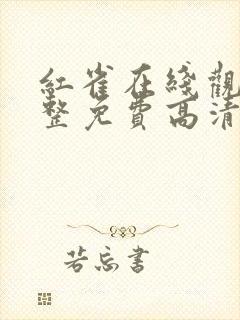 紅雀在綫觀
整免費高清
若忘書